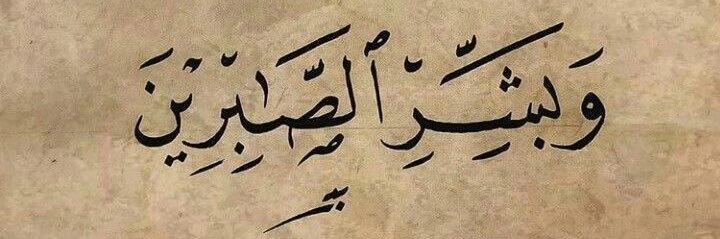 وَبَشِّرِ ٱلصَّٰبِرِيْنَ